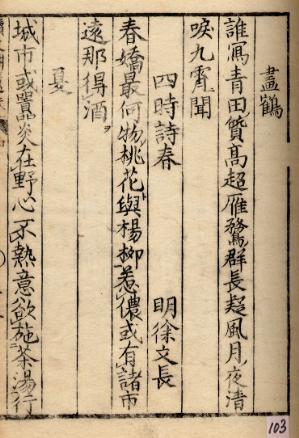 畫鶴
誰冩青田質高超雁鶩群長疑風月夜清
唳九霄聞
四時詩春　明徐文長
春嬌最何物桃花與楊柳惹儂或有諸市
遠那得酒
夏
城市或囂炎在野心不熱意欲施茶湯行
103